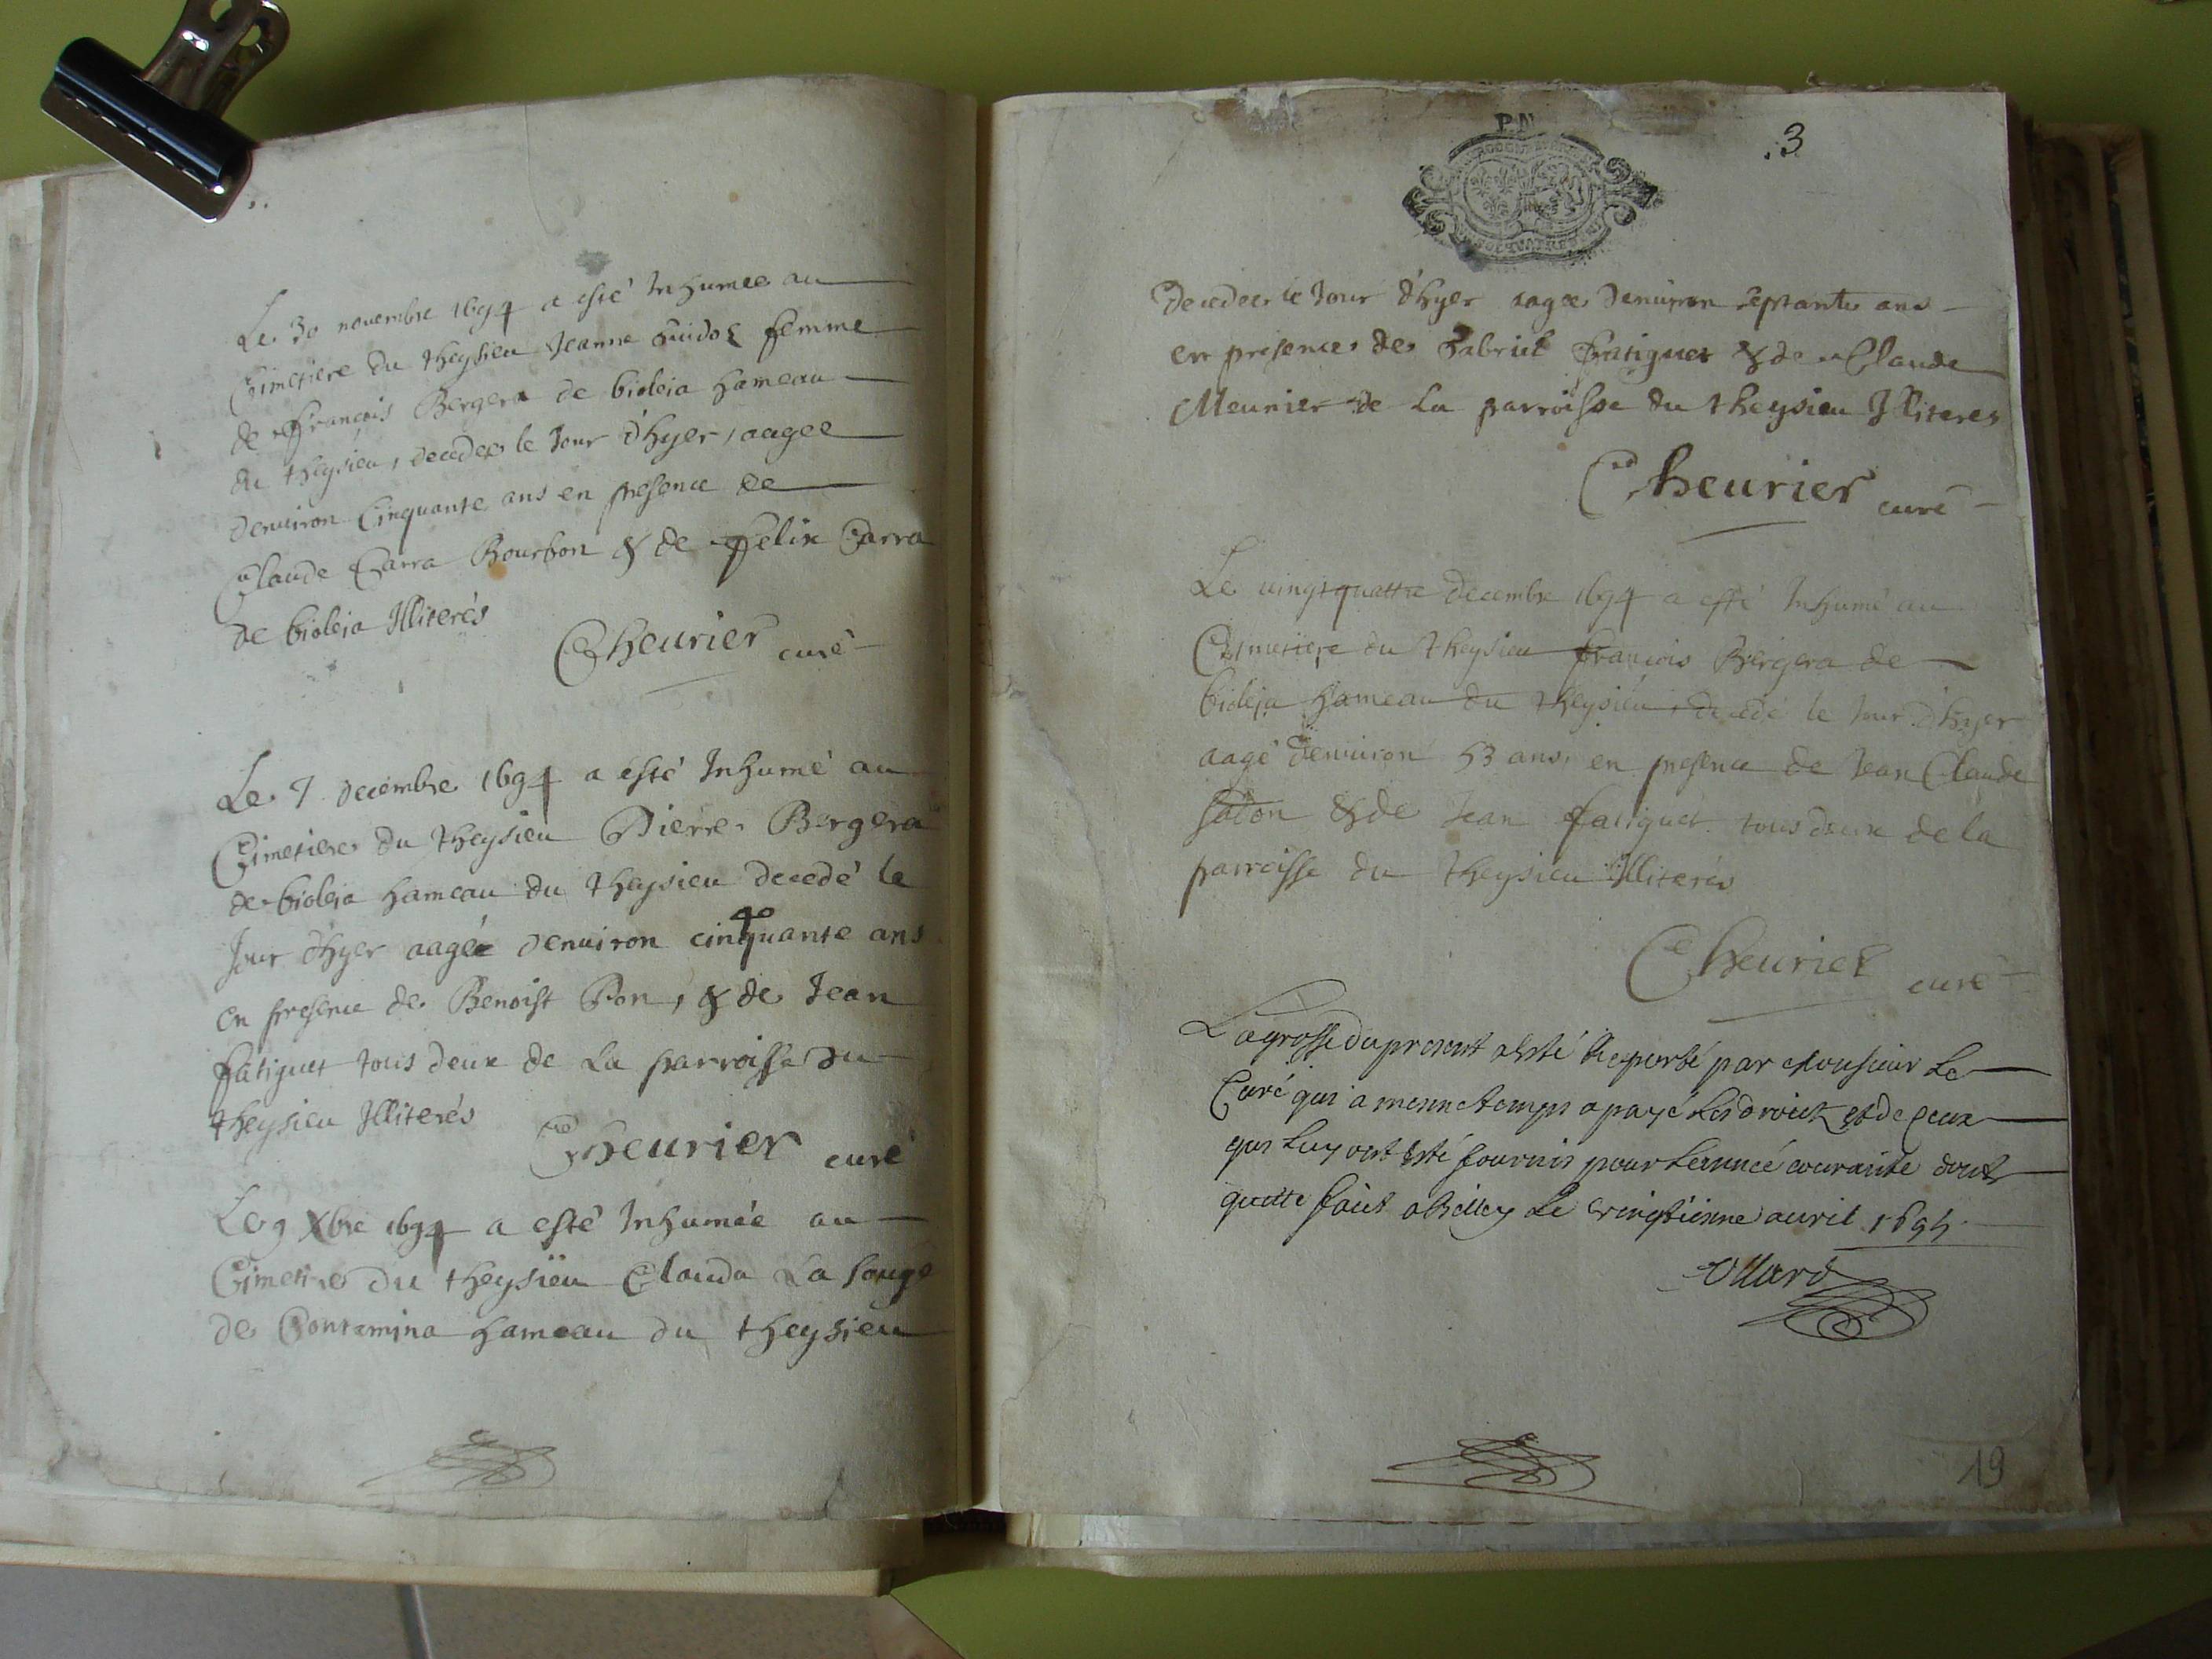 Le 30 novembre 1694 a esté Inhumée au
Cimetiere du theysieu Jeanne Guidoz femme
de François Bergera de bioleia hameau
du theysieu, decedee le Jour d'hyer, aagee
denuiron Cinquante ans en presence de
Claude Carra Bourbon & de Felix Carra
de bioleia Illiterés
Cheurier curé
Le 7 decembre 1694 a esté Inhumé au
Cimetiere du theysieu Pierre Bergera
de bioleia hameau du theysieu decedé le
40
Jour d'hyer aagée denuiron cinquante ans
en presence de Benoist Pon, & de Jean
fatiguet tous deux de La parroisse du
theysieu Illiterés
Cheurier curé
Le 9 Xbre 1694 a esté Inhumée au
Cimetire du theysieu Clauda La
de Contamina hameau du theysieu
PN
3
decedee le Jour d'hyer aagee denuiron septante ans
en presence de Gabriel fatiguet & de Claude
Meunier de La parroisse du theysieu Illiteres
Cheurier curé
Le uingtquattre decembre 1694 a esté Inhumé au
Cimetiere du theysieu françois Bergera de
bioleja hameau du theysieu, decedé le Jour d'hyer
aagé denuiron 53 ans, en presence de Jean Claude
& de Jean fatiguet tous deux de la
parroisse du theysieu Illiterés
Cheurier curé
La grosse du present a esté Raporté par Monsieur Le
Curé qui a mesme temps a payé Les droicts et de ceux
qui Luy ont esté fournis pour Lannée courante dont
quitte faict a Belley Le vingtienne auril 1695
19